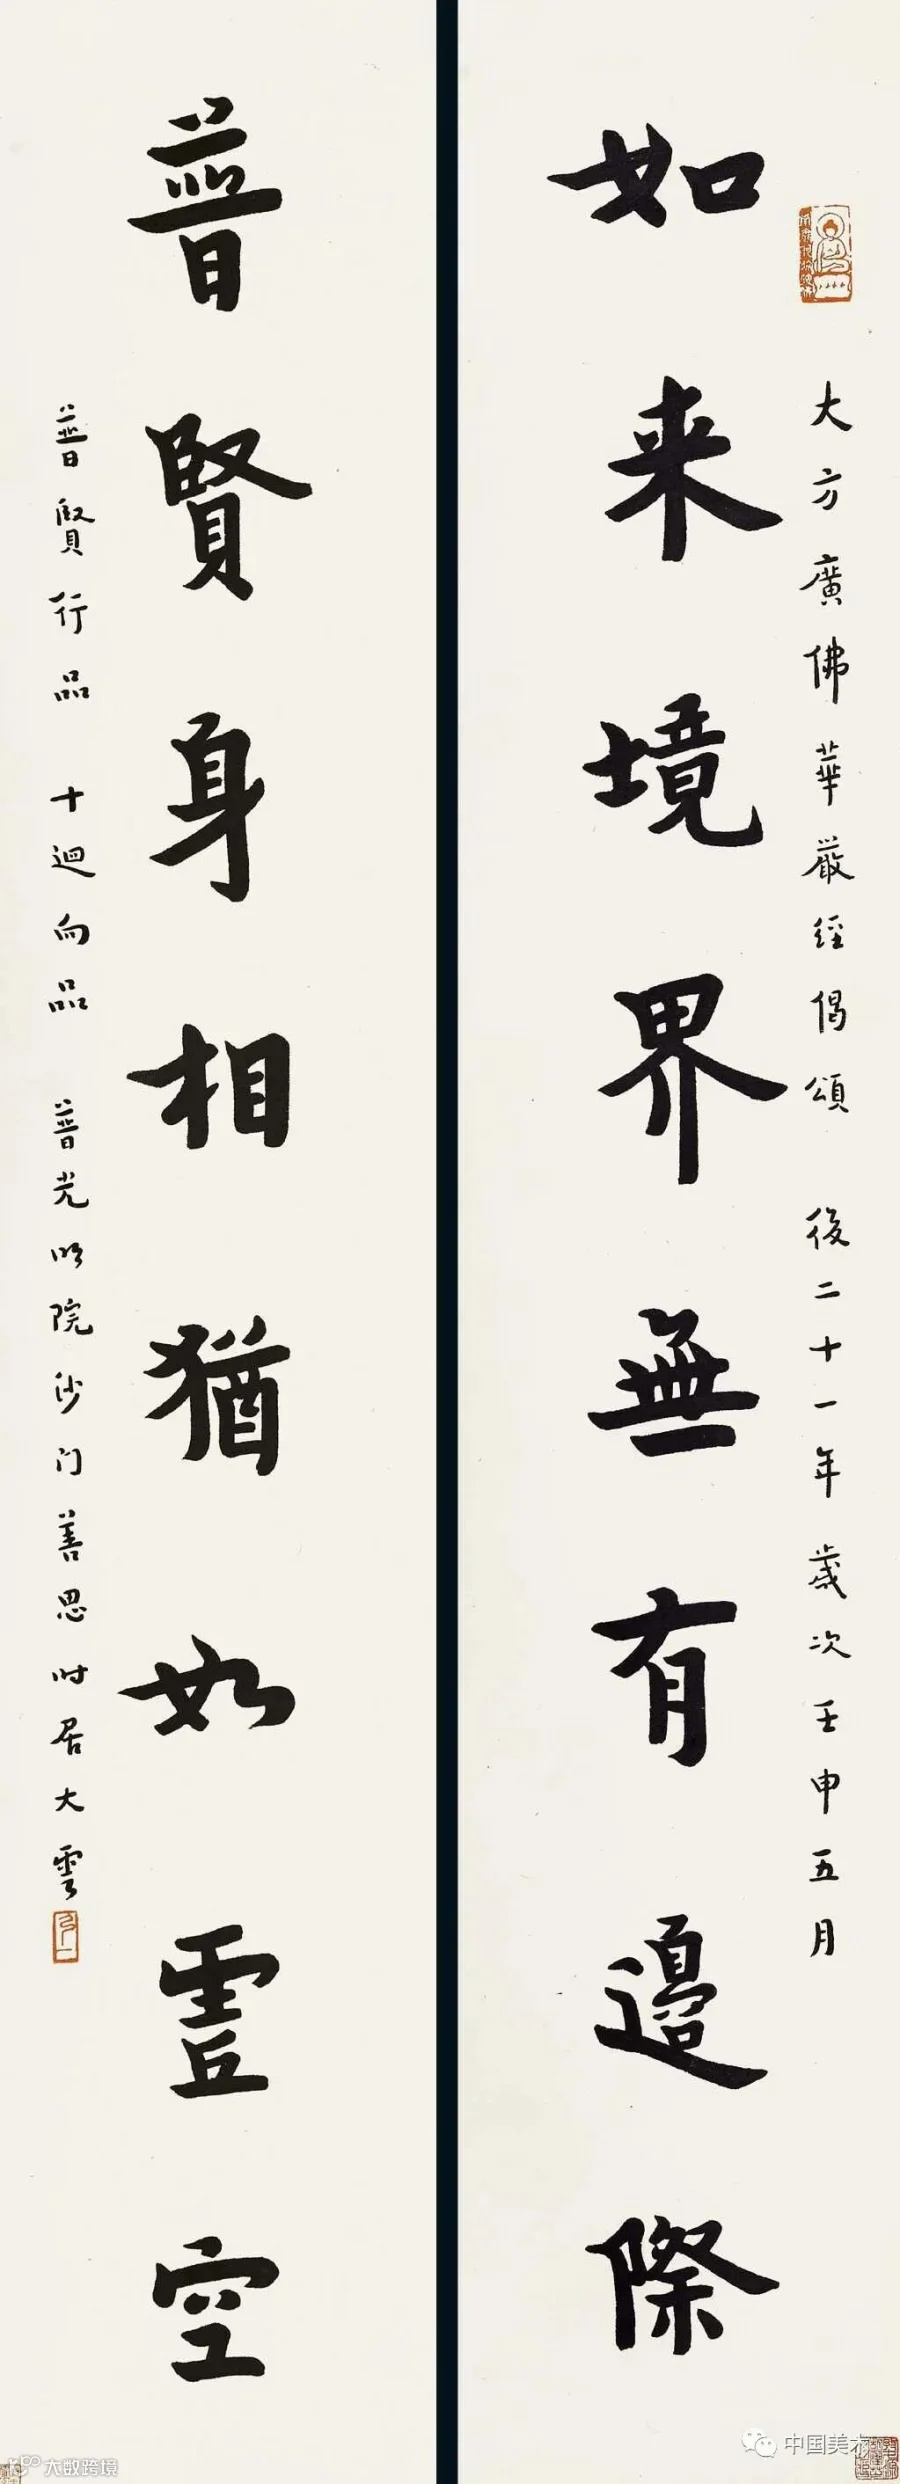 大方廣佛華嚴經偈頌 後二十一年歲次壬申五月
如来境界無有邊際
普賢身相猶如虛空
普賢行品 十迴向品 普光明院沙门善思时居大雲
中国美术
大数跨境